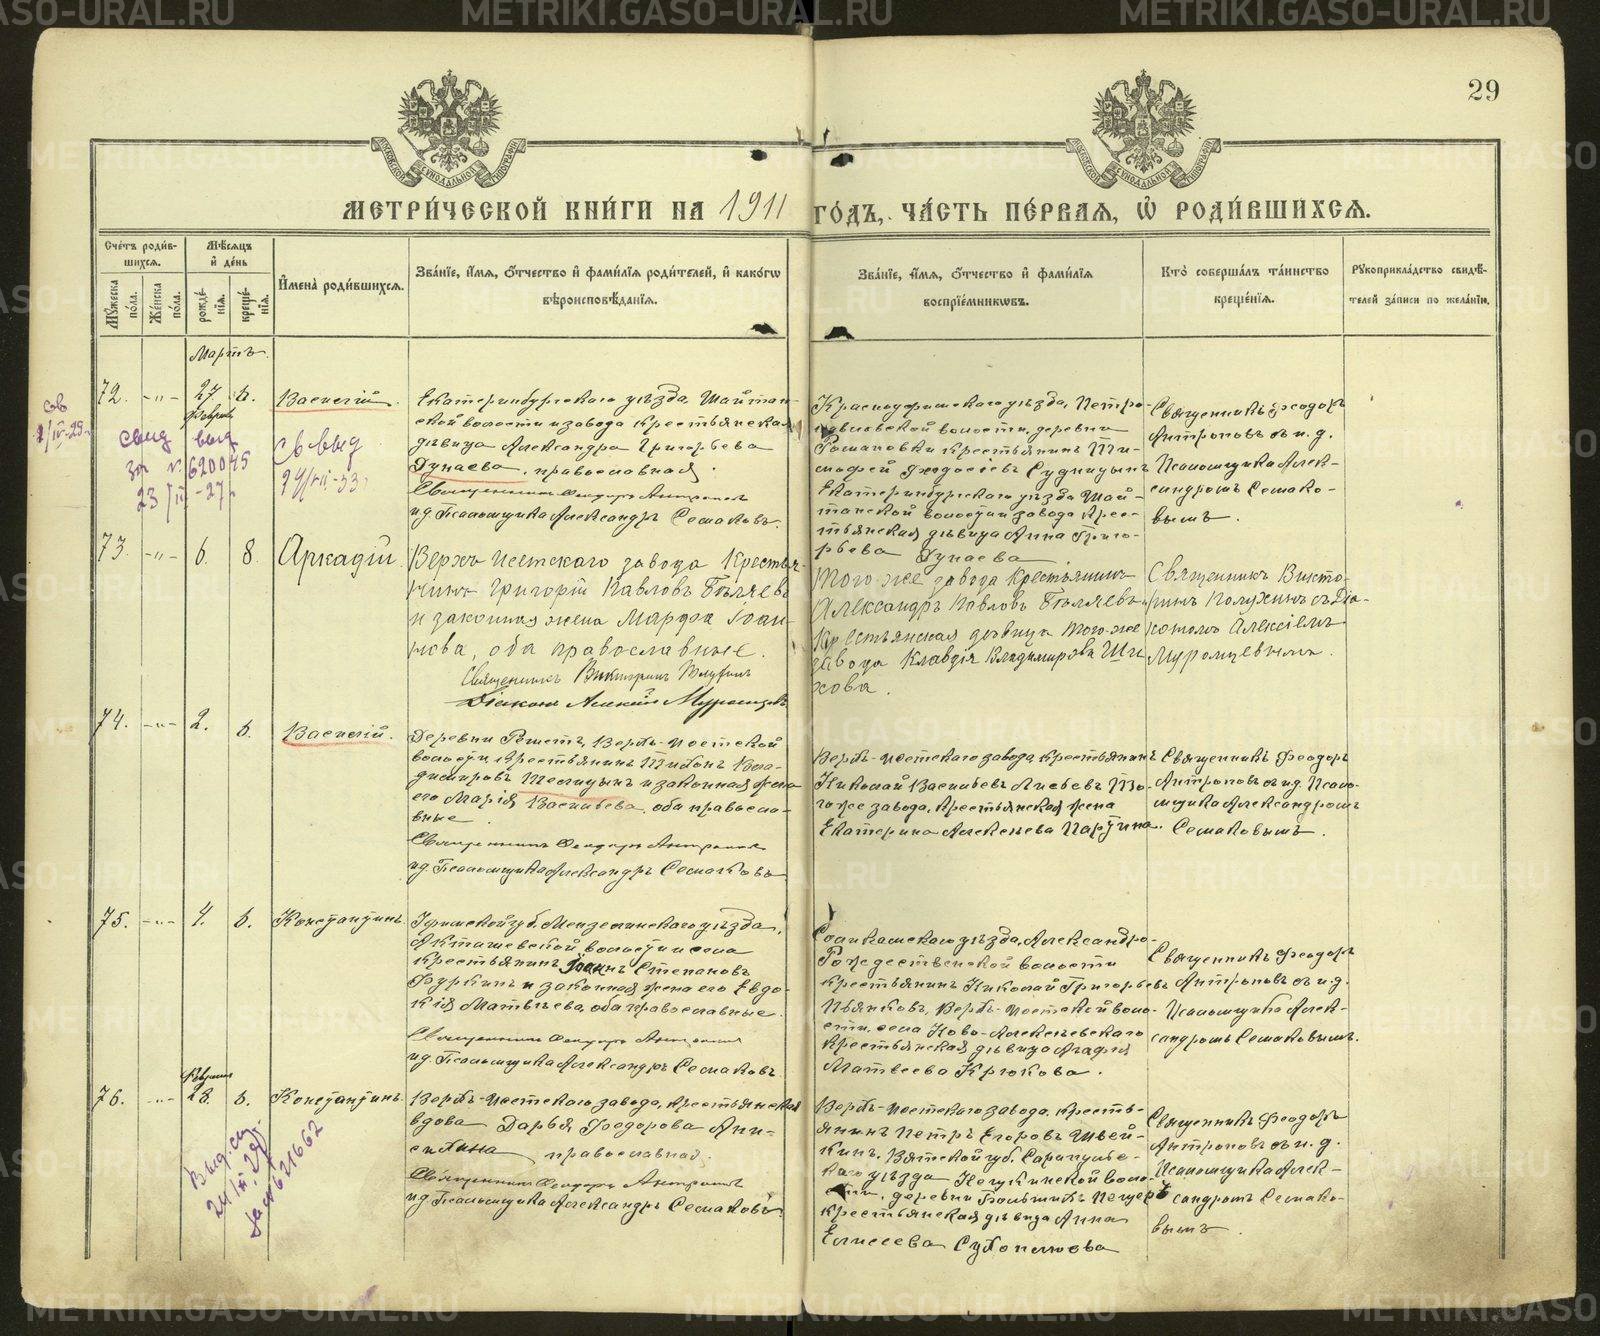 29
МЕТРИ́ЧЕСКОЙ КНИ́ГИ НА 1911 ГО́ДЪ, ЧА́СТЬ ПЕ́РВАЯ, Ѡ҆ РОДИ́ВШИХСЯ.
Сче́тъ роди́в-
шихся.
Мѣ́сяцъ
и҆ де́нь
Мꙋ́жеска по́ла.
Же́нска по́ла.
рожде́-
нїя.
креще́-
нїя.
И҆мена̀ роди́вшихся.
Зва́нїе, и҆́мя, ѻ҆́тчество и҆ фами́лїя роди́телей, и҆ како́гѡ
вѣроисповѣ́данїя.
Зва́нїе, и҆́мя, ѻ҆́тчество и҆ фами́лїя
воспрїе́мникѡвъ.
Кто̀ соверша́лъ та́инство
креще́нїя.
Рꙋкоприкла́дство свидѣ́-
телей за́писи по жела́нїю.
Мартъ.
72.
-"-
27
Февраль
6.
Василій.
Екатеринбургскаго уѣзда, Шайтан-
ской волости и завода крестьянская
дѣвица Александра Григорьева
Дунаева, православная.
Священникъ Феодоръ Антроповъ
и д. Псаломщика Александръ Семаковъ.
Красноуфимскаго уѣзда, Петро-
павловской волости, деревни
Романовки крестьянинъ Ти-
мофей Федосеевъ Судницынъ
Екатеринбургскаго уѣзда Шай-
танской волости и завода крес-
тьянская дѣвица Анна Григо-
рьева Дунаева
Священникъ Феодоръ
Антроповъ съ и. д.
Псаломщика Алек-
сандромъ Семако-
вымъ.
73.
-"-
6.
8.
Аркадій.
Верхъ Исетскаго завода Крестья-
нинъ Григорій Павловъ Бѣляевъ
и законная жена Марфа Іоан-
нова, оба православные.
Священникъ Викторинъ Полухинъ
Діаконъ Алексій Муромцевъ
Того-же завода Крестьянинъ
Александръ Павловъ Бѣляевъ и
Крестьянская дѣвица того-же
завода Клавдія Владимирова Ши-
хова.
Священникъ Викто-
ринъ Полухинъ съ Діа-
кономъ Алексіемъ
Муромцевымъ.
74.
-"-
2.
6.
Василій.
Деревни Решетъ, Верхъ-Исетской
волости, крестьянинъ Тихонъ Вла-
димировъ и законная жена
его Марія Васильева, оба правосла-
вные
Священникъ Феодоръ Антроповъ
и д. Псаломщика Александръ Семаковъ
Верхъ-Исетскаго завода, крестьянинъ
Николай Васильевъ То-
го же завода, крестьянская жена
Екатерина Алексѣева Паргина.
Священникъ Феодоръ
Антроповъ съ и д. Псало-
мщика Александромъ
Семаковымъ.
75.
-"-
4.
6.
Константинъ
Уфимской губ. Мензелинскаго уѣзда,
Акташевской волости и села
крестьянинъ Іоаннъ Степановъ
Фуркинъ и законная жена его Евдо-
кія Матвѣева, оба православные.
Священникъ Феодоръ Антроповъ
и д. Псаломщика Александръ Семаковъ.
Соликамскаго уѣзда, Александро-
Рождественской волости
крестьянинъ Николай Григорьевъ
Пьянковъ, Верхъ-Исетской воло-
сти, села Ново-Алексѣевскаго
крестьянская дѣвица Агафія
Матвеева Крюкова.
Священникъ Феодоръ
Антроповъ съ и. д.
Псаломщика Алек-
сандромъ Семаковымъ.
76.
-"-
Февраля
28.
6.
Константинъ
Верхъ-Исетскаго завода, крестьянская
вдова Дарья Феодорова Ани-
православная.
Священникъ Феодоръ Антроповъ
и д. Псаломщика Александръ Семаковъ
Верхъ-Исетскаго завода, кресть-
янинъ Петръ Егоровъ Швей-
кинъ. Вятской губ. Сарапульс-
каго уѣзда воло-
сти, деревни
крестьянская дѣвица Анна
Елисеева
Священникъ Феодоръ
Антроповъ съ и. д.
Псаломщика Алек-
сандромъ Семако-
вымъ
METRIKI.GASO-URAL.RU